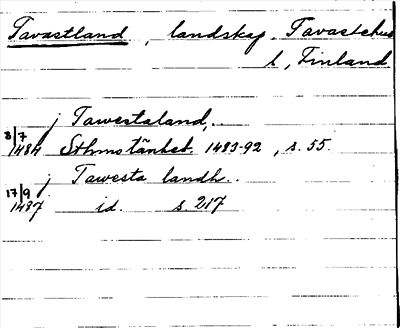 Tavastland, landskap. Tavastehus
l, Finland
j Tawestaland,
8/7
1484 Sthms tänkeb. 1483-92, s. 55.
j Tawesta landh.
17/9
1487 id. s. 217